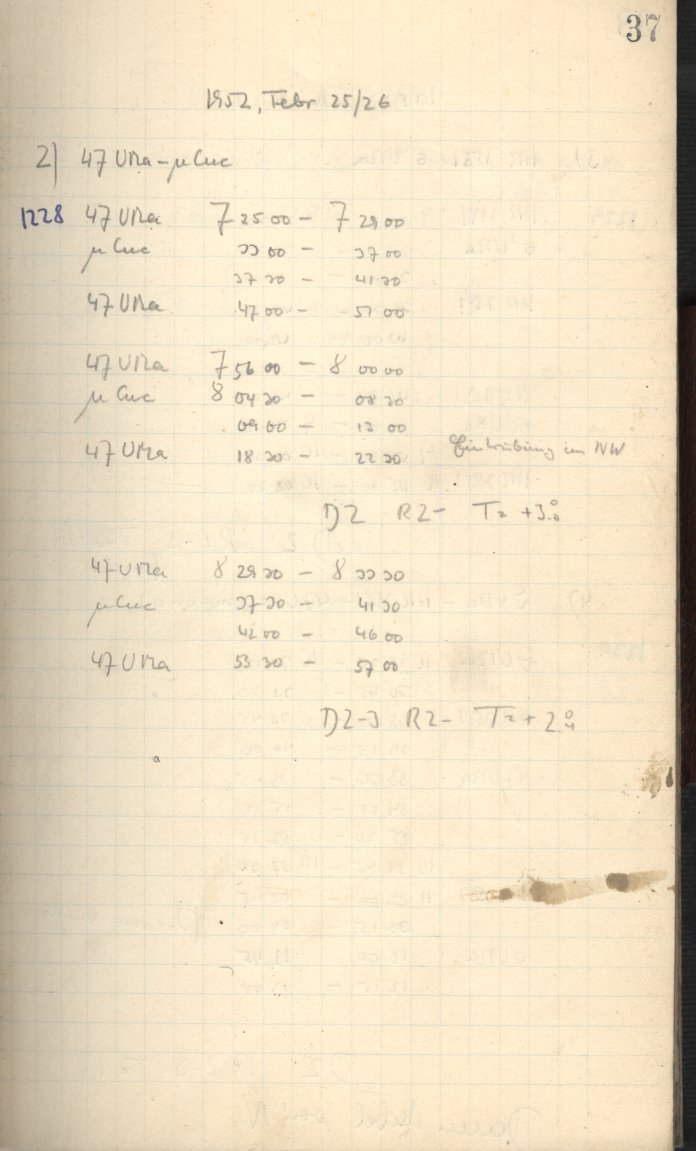 37
1952, Febr 25/26
2) 47 UMa – μ Cnc
1228 47 UMa 7 25 00 – 7 29 00
μ Cnc 33 00 – 37 00
37 30 – 41 30
47 UMa 47 00 – 51 00
47 UMa 7 56 00 – 8 00 00
μ Cnc 8 04 30 – 08 30
09 00 – 13 00
47 UMa 18 30 – 22 30 Eintrübung im NW
D2 R2– T= +3.°0
47 UMa 8 29 30 – 8 33 30
μ Cnc 37 30 – 41 30
42 00 – 46 00
47 UMa 53 30 – 57 00
D2-3 R2– T= +2.°4